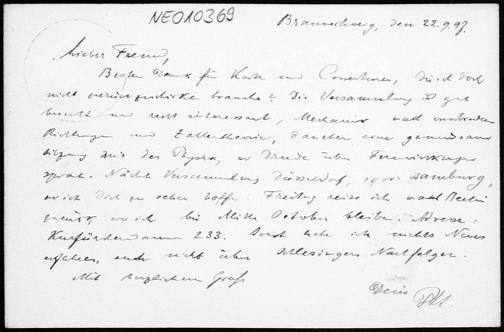 NEO10369
Braunschweig, den 22.9.97.
Lieber Freund,
Besten Dank für Karte und die ich doch
nicht zurückzuschicken brauche? Die Versammlung ist gut
besucht und recht interessant, Mechanik nach verschiedenen
Richtungen und Zahlentheorie, daneben eine gemeinsame
Sitzung mit der Physik, wo Drude über Fernwirkungen
sprach. Nächste Versammlung Düsseldorf, Hamburg,
wo ich Dich zu sehen hoffe. Freitag reise ich nach Berlin
zurück, wo ich bis Mitte October bleibe. Adresse:
Kurfürstendamm 233. Sonst habe ich nichts Neues
erfahren, auch nicht über Schlesingers Nachfolger.
Mit herzlichem Gruß
Dein